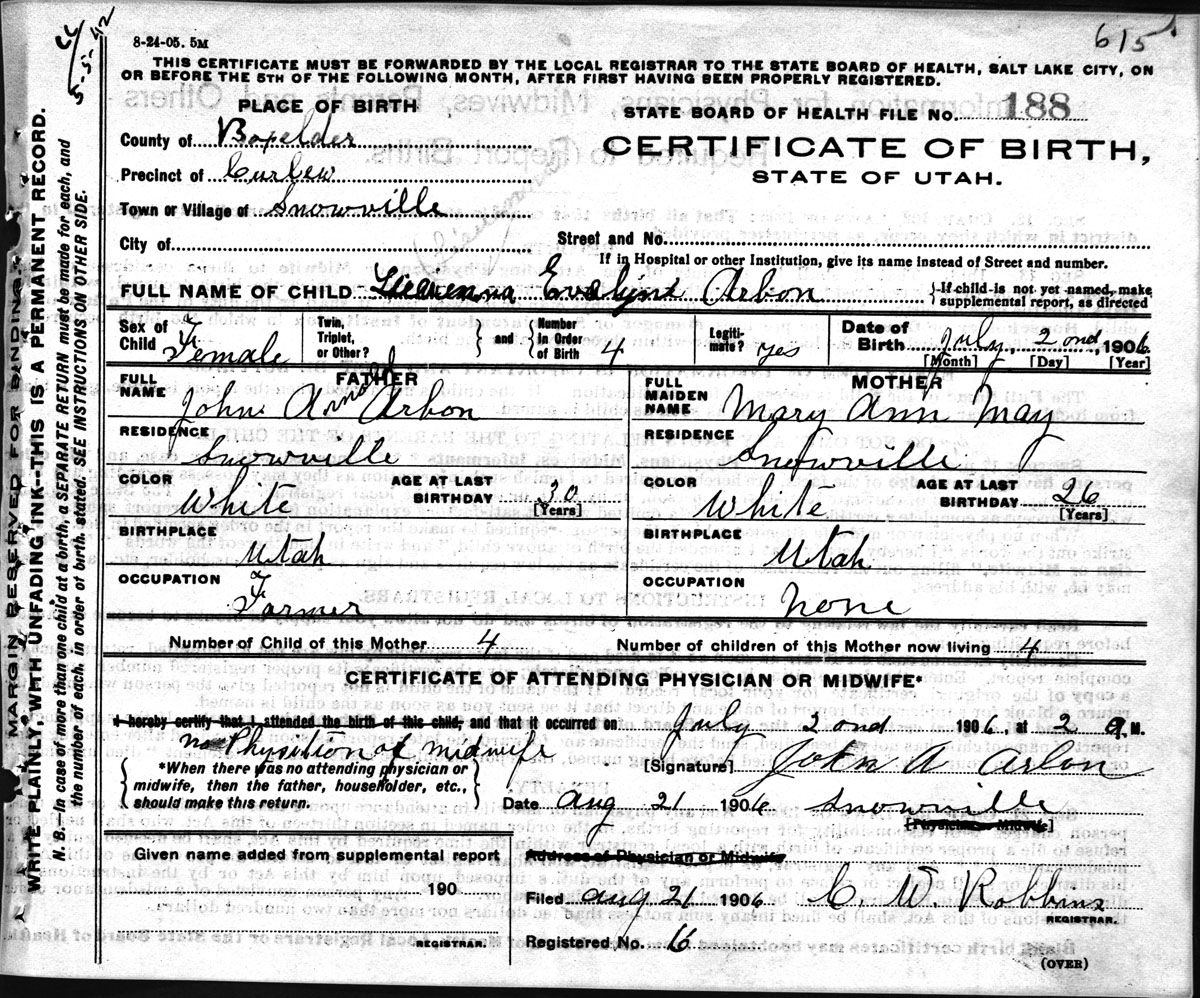 cc
5-5-42
615
8-24-05. 5M
THIS CERTIFICATE MUST BE FORWARDED BY THE LOCAL REGISTRAR TO THE STATE BOARD OF HEALTH, SALT LAKE CITY, ON
OR BEFORE THE 5TH OF THE FOLLOWING MONTH, AFTER FIRST HAVING BEEN PROPERLY REGISTERED.
PLACE OF BIRTH
STATE BOARD OF HEALTH FILE No. 188
County of Boxelder
CERTIFICATE OF BIRTH,
Precinct of Curlew
STATE OF UTAH.
Town or Village of Snowville
City of
Street and No.
If in Hospital or other Institution, give its name instead of Street and number.
FULL NAME OF CHILD Evelyne Arbon
{If child is not yet named, make
supplemental report, as directed
Sex of Child Female
Twin, Triplet, or Other?
and
Number in Order of Birth 4
Legitimate? yes
Date of Birth July 2ond, 1906
[Month] [Day] [Year]
FATHER
FULL NAME John Arnold Arbon
RESIDENCE
Snowville
COLOR White
AGE AT LAST BIRTHDAY 30
[Years]
BIRTHPLACE
Utah
OCCUPATION
Farmer
MOTHER
FULL MAIDEN NAME Mary Ann May
RESIDENCE
Snowville
COLOR White
AGE AT LAST BIRTHDAY 26
[Years]
BIRTHPLACE
Utah
OCCUPATION
None
Number of Child of this Mother 4
Number of children of this Mother now living 4
CERTIFICATE OF ATTENDING PHYSICIAN OR MIDWIFE*
I hereby certify that I attended the birth of this child, and that it occurred on July 2ond 1906, at 2 a. M.
no Physition of midwife
{*When there was no attending physician or
midwife, then the father, householder, etc.,
should make this return.}
[Signature] John A Arbon
Date Aug 21 1906 Snowville
[Physician Midwife]
Given name added from supplemental report
Address of Physician or Midwife
190
Filed Aug 21 1906 C. W. Robbins
REGISTRAR.
REGISTRAR.
Registered No. 16
(OVER)
MARGIN RESERVED FOR BINDING
WRITE PLAINLY, WITH UNFADING INK—THIS IS A PERMANENT RECORD.
N. B. In case of more than one child at a birth, a SEPARATE RETURN must be made for each, and
the number of each, in order of birth, stated. SEE INSTRUCTIONS ON OTHER SIDE.